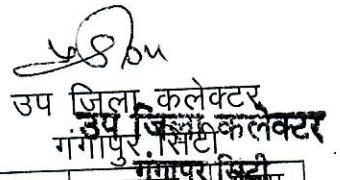 उप जिला कलेक्टर
उप जिला कलेक्टर
गंगापुर सिटी
गंगापुर सिटी